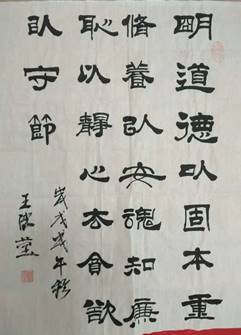 明道德以固本重
脩養以安魂知廉
恥以靜心去貪欲
以守節
岁戊戌年秋
王